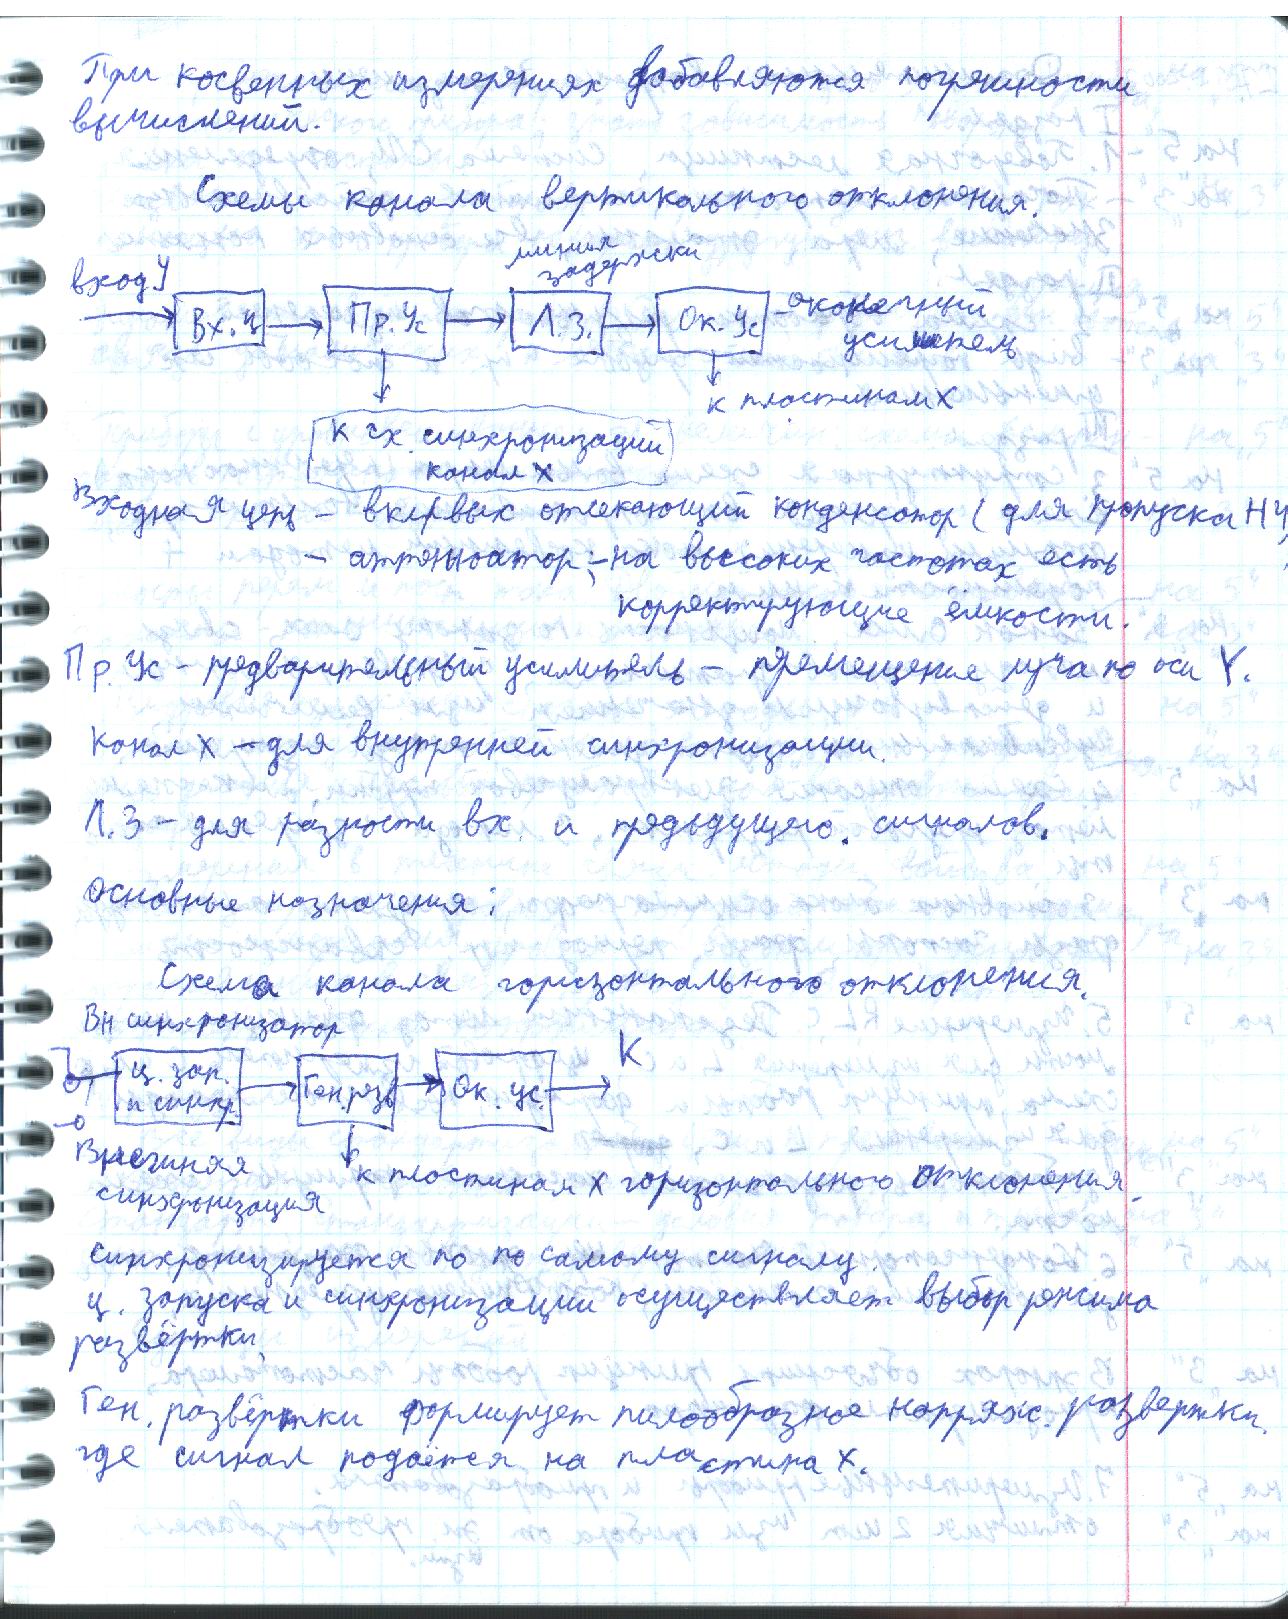 При косвенных измерениях добавляются погрешности
вычислений.
Схемы канала вертикального отклонения.
линия
задержки
вход У
Вх. ц
Пр. Ус
Л.З.
Ок. Ус
- оконечный
усилитель
к пластинам Х
к сх. синхронизации
канал Х
Входная цепь – отсекающий конденсатор ( для пропуска НЧ,
– аттенюатор ; – на высоких частотах есть
корректирующие ёмкости.
Пр. Ус – предварительный усилитель – премещение луча по оси Y.
Канал Х – для внутренней синхронизации.
Л.З – для разности вх. и предыдущего. сигналов.
Основные назначения:
Схема канала горизонтального отклонения.
Вн синхронизатор
ц. зап.
и синхр.
Ген. разв
Ок. ус.
К
Внешняя
синхронизация
к пластинам Х горизонтального отклонения.
синхронизируется по по самому сигналу.
ц. запуска и синхронизации осуществляет выбор режима
развёртки.
Ген. развёртки формирует пилообразное напряж. развертки.
где сигнал подаётся на пластина Х.